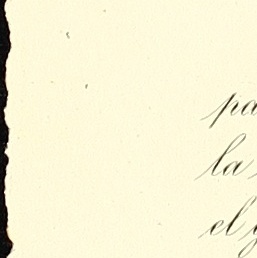 pa
la
el